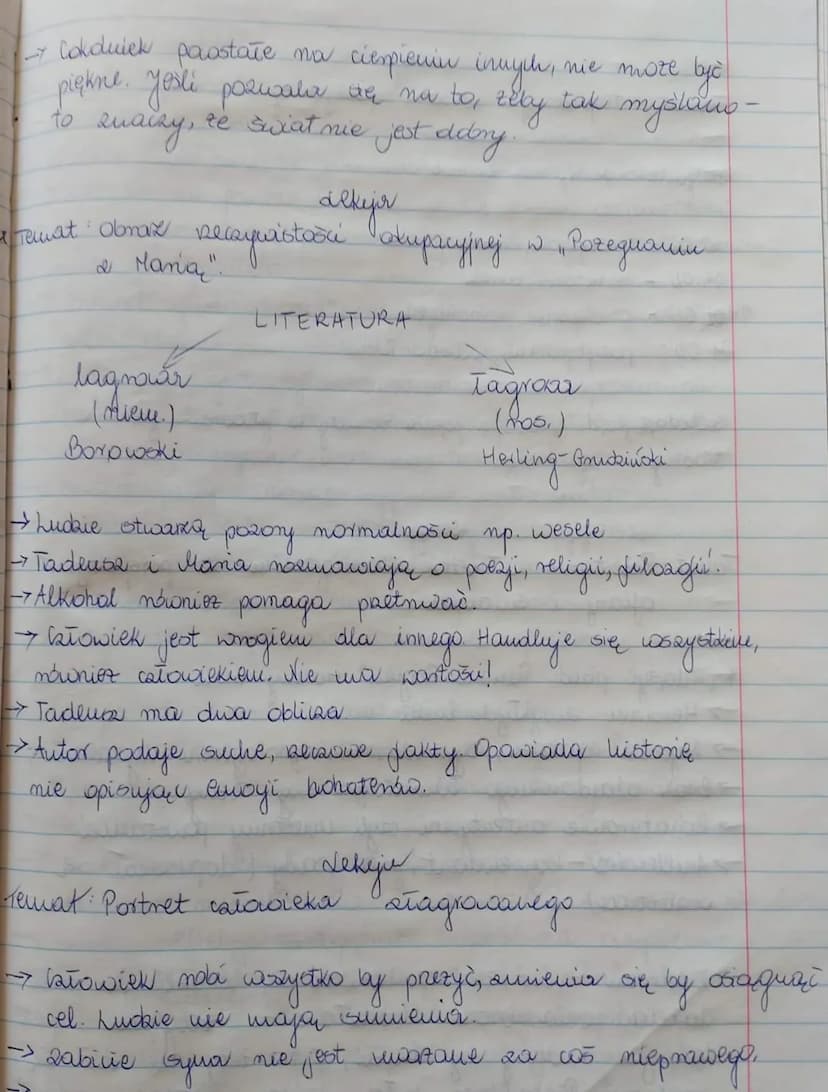 → Cokolwiek powstałe na cierpieniu innych, nie może być
piękne. Jeśli pozwala się na to, żeby tak myślano -
to znaczy, że świat nie jest dobry.
Lekcja
Temat: Obraz rzeczywistości okupacyjnej w „Pożegnaniu
z Marią".
LITERATURA
lagrowa
(niem.)
Borowski
łagrowa
(ros.)
Herling-Grudziński
→ Ludzie stwarzą pozory normalności np. wesele
→ Tadeusz i Maria rozmawiają o poezji, religii, filozofii.
→ Alkohol również pomaga przetrwać.
→ Człowiek jest wrogiem dla innego. Handluje się wszystkim,
również człowiekiem. Nie ma wartości!
→ Tadeusz ma dwa oblicza
→ Autor podaje suche, rzeczowe fakty. Opowiada historię
nie opisując emocji bohaterów.
Lekcja
Temat: Portret człowieka zlagrowanego
→ Człowiek robi wszystko by przeżyć, zmienia się by osiągnąć
cel. Ludzie nie mają sumienia.
→ Zabicie syna nie jest uważane za coś niepoprawnego.
→